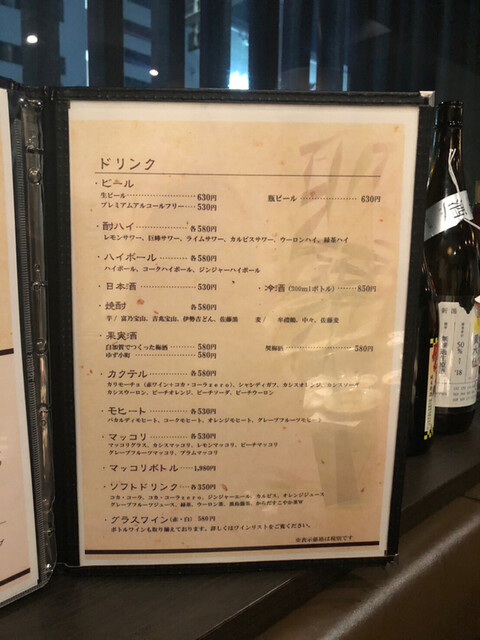 ドリンク
・ビール
生ビール 630円 瓶ビール 630円
プレミアムアルコールフリー 530円
・酎ハイ 各580円
レモンサワー、巨峰サワー、ライムサワー、カルピスサワー、ウーロンハイ、緑茶ハイ
・ハイボール 各580円
ハイボール、コークハイボール、ジンジャーハイボール
・日本酒 530円 ・冷酒(300mlボトル) 850円
・焼酎 各580円
芋/ 富乃宝山、吉兆宝山、伊勢吉どん、佐藤黒 麦/ 中々、佐藤麦
・果実酒
白加賀でつくった梅酒 580円 580円
ゆず小町 580円
・カクテル 各580円
カリモーチョ(赤ワイン+コカ・コーラzero)、シャンディガフ、カシスオレンジ、カシスソーダ
カシスウーロン、ピーチオレンジ、ピーチソーダ、ピーチウーロン
・モヒート 各530円
バカルディモヒート、コークモヒート、オレンジモヒート、グレープフルーツモヒート
・マッコリ 各530円
マッコリグラス、カシスマッコリ、レモンマッコリ、ピーチマッコリ
グレープフルーツマッコリ、プラムマッコリ
・マッコリボトル 1,980円
・ソフトドリンク 各350円
コカ・コーラ、コカ・コーラzero、ジンジャーエール、カルピス、オレンジジュース
グレープフルーツジュース、緑茶、ウーロン茶、黒烏龍茶、からだすこやか茶W
・グラスワイン(赤・白) 580円
ボトルワインも取り揃えております。詳しくはワインリストをご覧ください。
※表示価格は税別です。